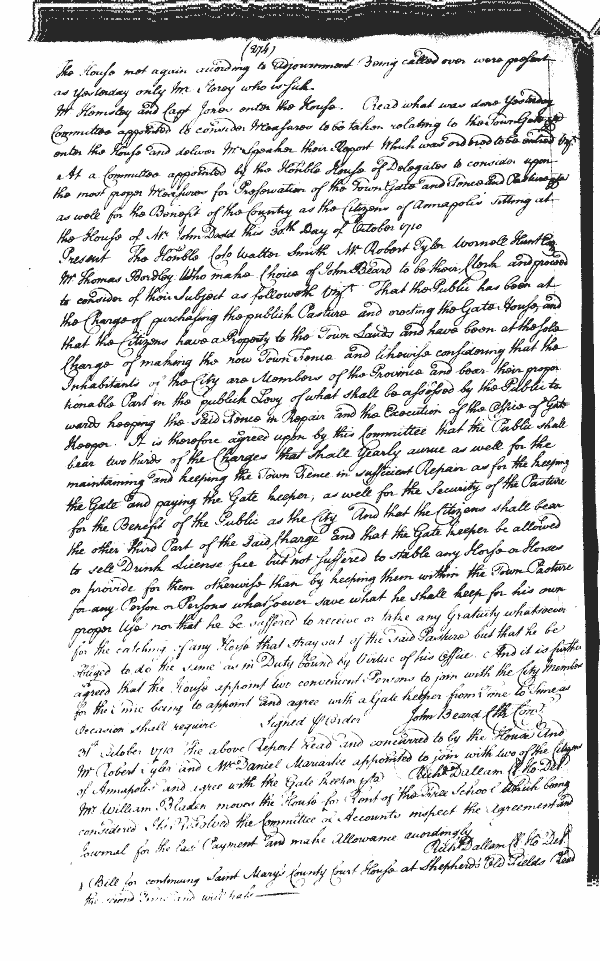 (274)
The House met again according to Adjournment Being called over were present
as Yesterday only Mr Storey who is sick.
Mr Hemsley and Capt Jones enter the House. Read what was done Yesterday
Committee appointed to consider Measures to be taken relating to the Town Gate &c
enter the House and deliver Mr Speaker their Report Which was ordered to be entred Vizt
At a Committee appointed by the Honble House of Delegates to consider upon
the most proper Measures for Preservation of the Town Gate and Fence and Pasture
as well for the Benefit of the Country as the Citizens of Annapolis Sitting at
the House of Mr John Dodd this 30th Day of October 1710
Present The Honble Colo Walter Smith Mr Robert Tyler Wornell Hunt Esq
Mr Thomas Bordley Who make Choice of John Beard to be their Clerk and proceed
to consider of their Subject as followeth Vizt That the Public has been at
the Charge of purchasing the publick Pasture and erecting the Gate House, and
that the Citizens have a Property to the Town Lands and have been at the sole
Charge of making the new Town Fence and likewise considering that the
Inhabitants of the City are Members of the Province and bear their propor
tionable Part in the publick Levy of what shall be assessed by the Public to
wards keeping the said Fence in Repair and the Execution of the Office of Gate
Keeper. It is therefore agreed upon by this Committee that the Public shall
bear two thirds of the Charges that shall Yearly acrue as well for the
maintaining and keeping the Town Fence in sufficient Repair as for the keeping
the Gate and paying the Gate keeper, as well for the Security of the Pasture
for the Benefit of the Public as the City And that the Citizens shall bear
the other third Part of the said Charge and that the Gate keeper be allowed
to sell Drink License free but not suffered to stable any Horse or Horses
or provide for them otherwise than by keeping them within the Town Pasture
for any Person or Persons whatsoever save what he shall keep for his own
proper Use nor that he be suffered to receive or take any Gratuity whatsoever
for the catching of any Horse that stray out of the said Pasture but that he be
obliged to do the same as in Duty bound by Virtue of his Office. And it is further
agreed that the House appoint two convenient Persons to join with the City Members
for the time being to appoint and agree with a Gate keeper from Time to Time as
Occasion shall require Signed p Order John Beard Clk Com
31st October 1710 The above Report Read and concurred to by the House And
Mr Robert Tyler and Mr Daniel Mariartee appointed to join with two of the Citizens
of Annapolis and agree with the Gate keeper &c Richd Dallam Cl Ho Del
Mr William Bladen moves the House for Rent of the Free School Which being
considered Resolved the Committee of Accounts inspect the Agreement and
Journal for the last Payment and make Allowance accordingly
Richd Dallam Cl Ho Del
A Bill for continuing Saint Mary's County Court House at Shepherds Old Fields Read
the second Time and will